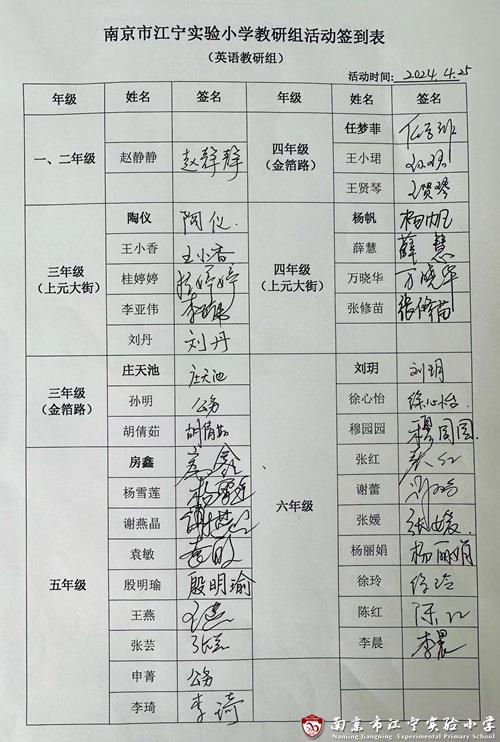 南京市江宁实验小学教研组活动签到表
（英语教研组）
活动时间: 2024.4.25
年级 姓名 签名 年级 姓名 签名
一、二年级
赵静静 赵静静
四年级
（金箔路）
任梦菲 任梦菲
王小珺
王贤琴 王贤琴
三年级
（上元大街）
陶仪 陶仪
王小香 王小香
桂婷婷 桂婷婷
李亚伟 李亚伟
刘丹 刘丹
四年级
（上元大街）
杨帆 杨帆
薛慧 薛慧
万晓华 万晓华
张修苗 张修苗
三年级
（金箔路）
庄天池 庄天池
孙明 公务
胡倩茹 胡倩茹
五年级
房鑫 房鑫
杨雪莲 杨雪莲
谢燕晶 谢燕晶
袁敏 袁敏
殷明瑜 殷明瑜
王燕 王燕
张芸 张芸
申菁 公务
李琦 李琦
六年级
刘玥 刘玥
徐心怡 徐心怡
穆园园 穆园园
张红 张红
谢蕾
张媛 张媛
杨丽娟 杨丽娟
徐玲 徐玲
陈红 陈红
李晨 李晨
南京市江宁实验小学
Nanjing Jiangning Experimental Primary School